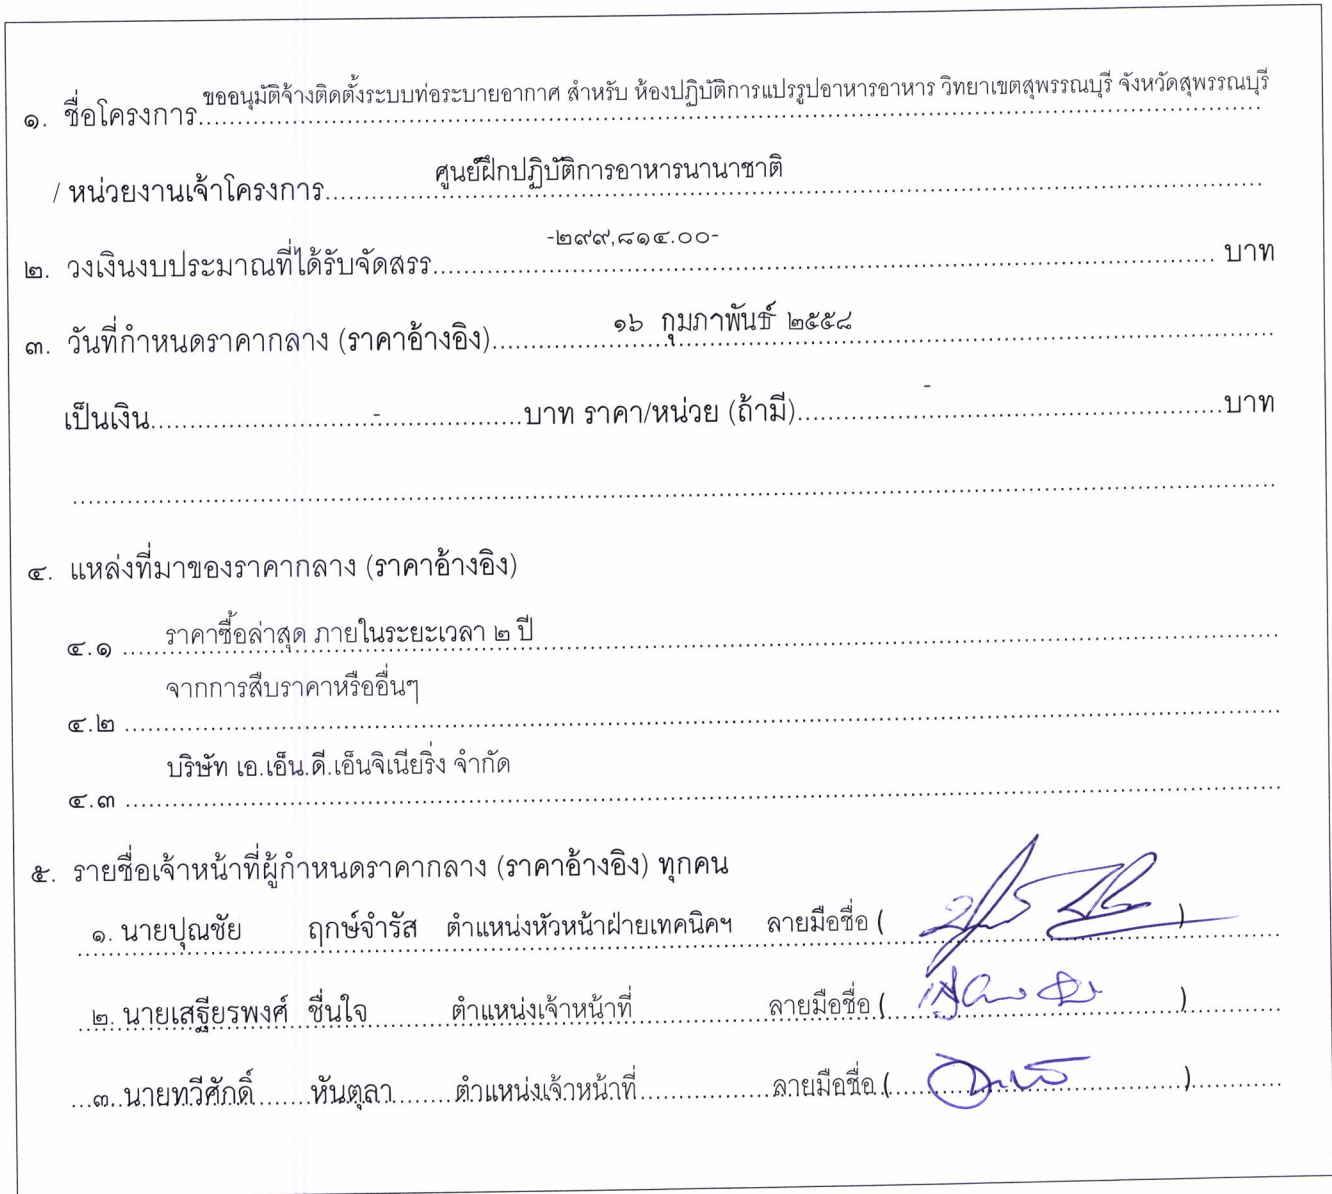 ๑. ชื่อโครงการ ขออนุมัติจ้างติดตั้งระบบท่อระบายอากาศ สำหรับ ห้องปฏิบัติการแปรรูปอาหารอาหาร วิทยาเขตสุพรรณบุรี จังหวัดสุพรรณบุรี
/ หน่วยงานเจ้าโครงการ ศูนย์ฝึกปฏิบัติการอาหารนานาชาติ
๒. วงเงินงบประมาณที่ได้รับจัดสรร -๒๙๙,๘๑๔.๐๐- บาท
๓. วันที่กำหนดราคากลาง (ราคาอ้างอิง) ๑๖ กุมภาพันธ์ ๒๕๕๘
เป็นเงิน - บาท ราคา/หน่วย (ถ้ามี) - บาท
๔. แหล่งที่มาของราคากลาง (ราคาอ้างอิง)
๔.๑ ราคาซื้อล่าสุด ภายในระยะเวลา ๒ ปี
๔.๒ จากการสืบราคาหรืออื่นๆ
๔.๓ บริษัท เอ.เอ็น.ดี.เอ็นจิเนียริ่ง จำกัด
๕. รายชื่อเจ้าหน้าที่ผู้กำหนดราคากลาง (ราคาอ้างอิง) ทุกคน
๑. นายปุณชัย ฤกษ์จำรัส ตำแหน่งหัวหน้าฝ่ายเทคนิคฯ ลายมือชื่อ ( )
๒. นายเสฐียรพงศ์ ชื่นใจ ตำแหน่งเจ้าหน้าที่ ลายมือชื่อ ( )
๓. นายทวีศักดิ์ หันตุลา ตำแหน่งเจ้าหน้าที่ ลายมือชื่อ ( )